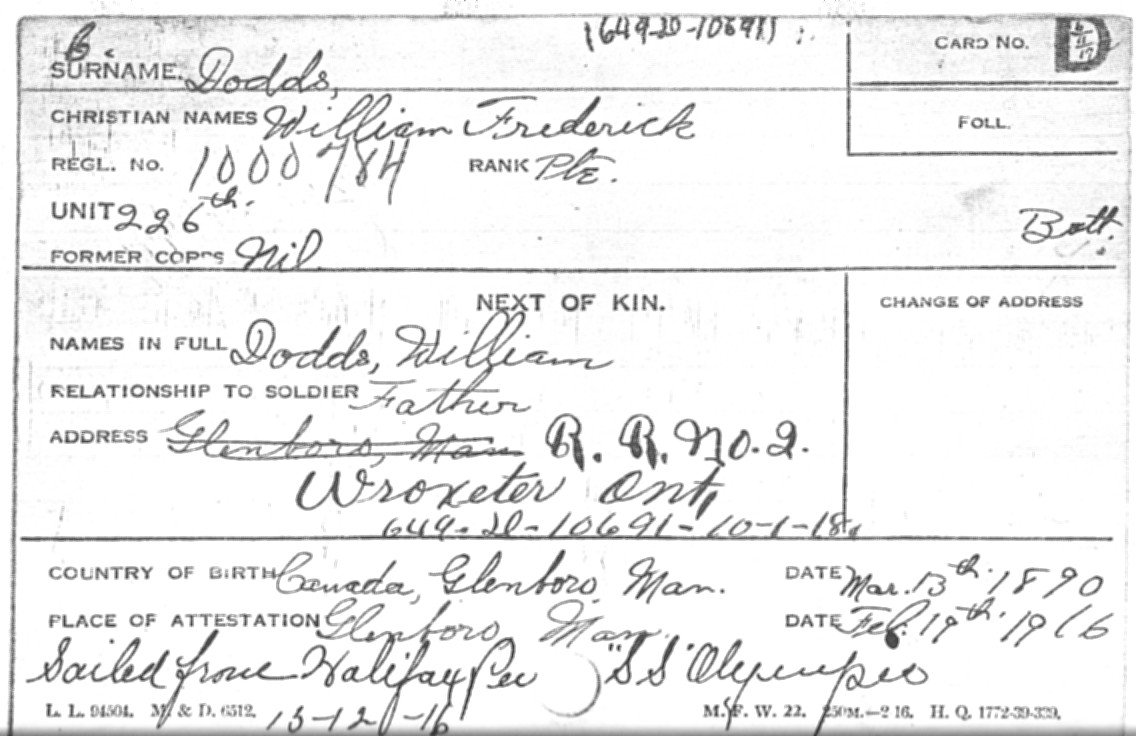 (649-D-10691)
CARD NO. D
6.
SURNAME. Dodds,
CHRISTIAN NAMES William Frederick
FOLL.
REGL. NO. 1000784 RANK Pte.
UNIT 226th. Batt.
FORMER CORPS Nil
NEXT OF KIN.
CHANGE OF ADDRESS
NAMES IN FULL Dodds, William
RELATIONSHIP TO SOLDIER Father
ADDRESS Glenboro, Man R. R. No. 2.
Wroxeter Ont,
649-D-10691-10-1-18
COUNTRY OF BIRTH Canada, Glenboro Man. DATE Mar. 13th. 1890
PLACE OF ATTESTATION Glenboro Man. DATE Feb. 19th. 1916
Sailed from Halifax Per "SS Olympic
L. L. 94504. M. & D. 6512. 13-12-16 M. F. W. 22. 250M.—2 16. H. Q. 1772-39-339.